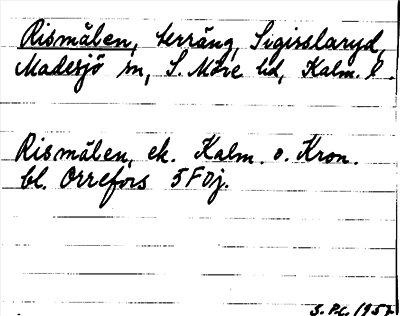 Rismålen, terräng, Sigirslaryd,
Madesjö sn, S. Möre hd, Kalm. l.
Rismålen, ek. Kalm. o. Kron.
bl. Orrefors 5F0j.
S. P.C. 195